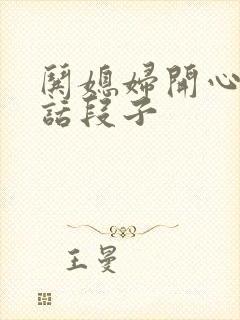 鬨媳婦開心
話段子
王曼